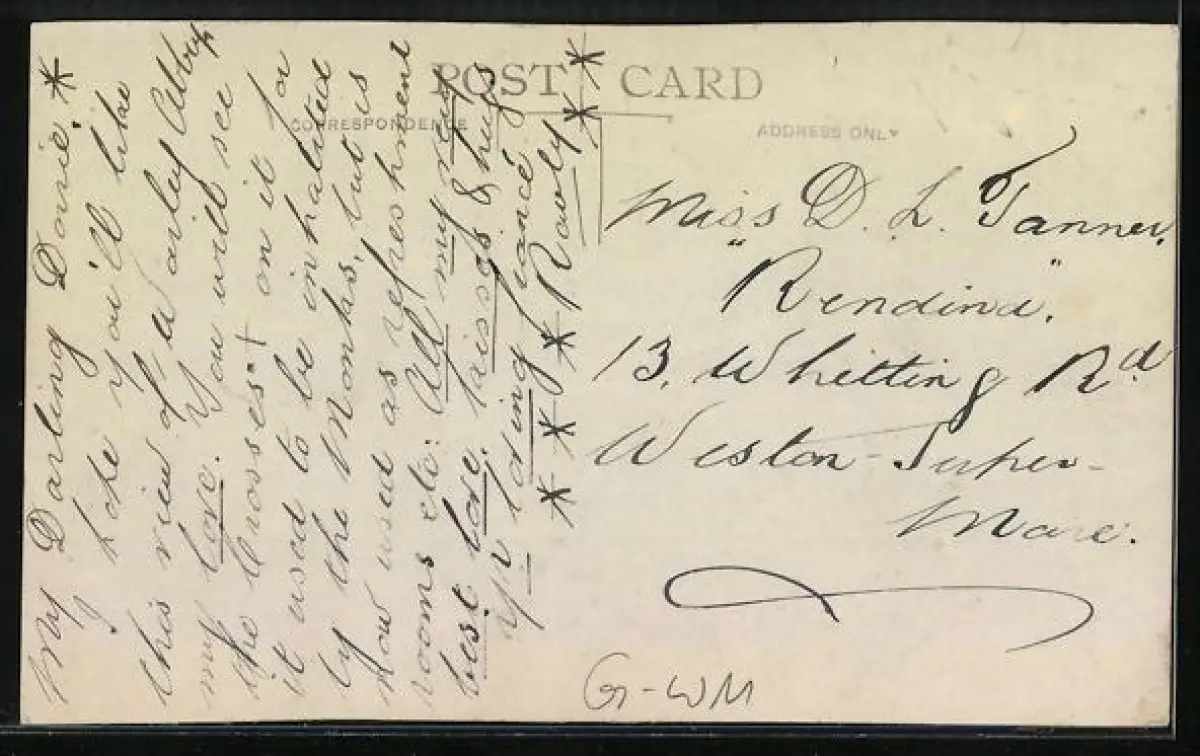 POST CARD
CORRESPONDENCE
ADDRESS ONLY
My Darling Dorrie. *
I hope you'll like
this view of Waverley Abbey
my love. You will see
the Crosses + on it for
it used to be inhabited
by the Monks, but is
now used as refreshment
rooms etc: All my very
best love, kisses & hugs
Yr loving fiancé
* * * * Rowly * *
Miss D. L. Tanner,
"Rendina".
13, Whitting Rd
Weston-Super-
Mare.
G-WM